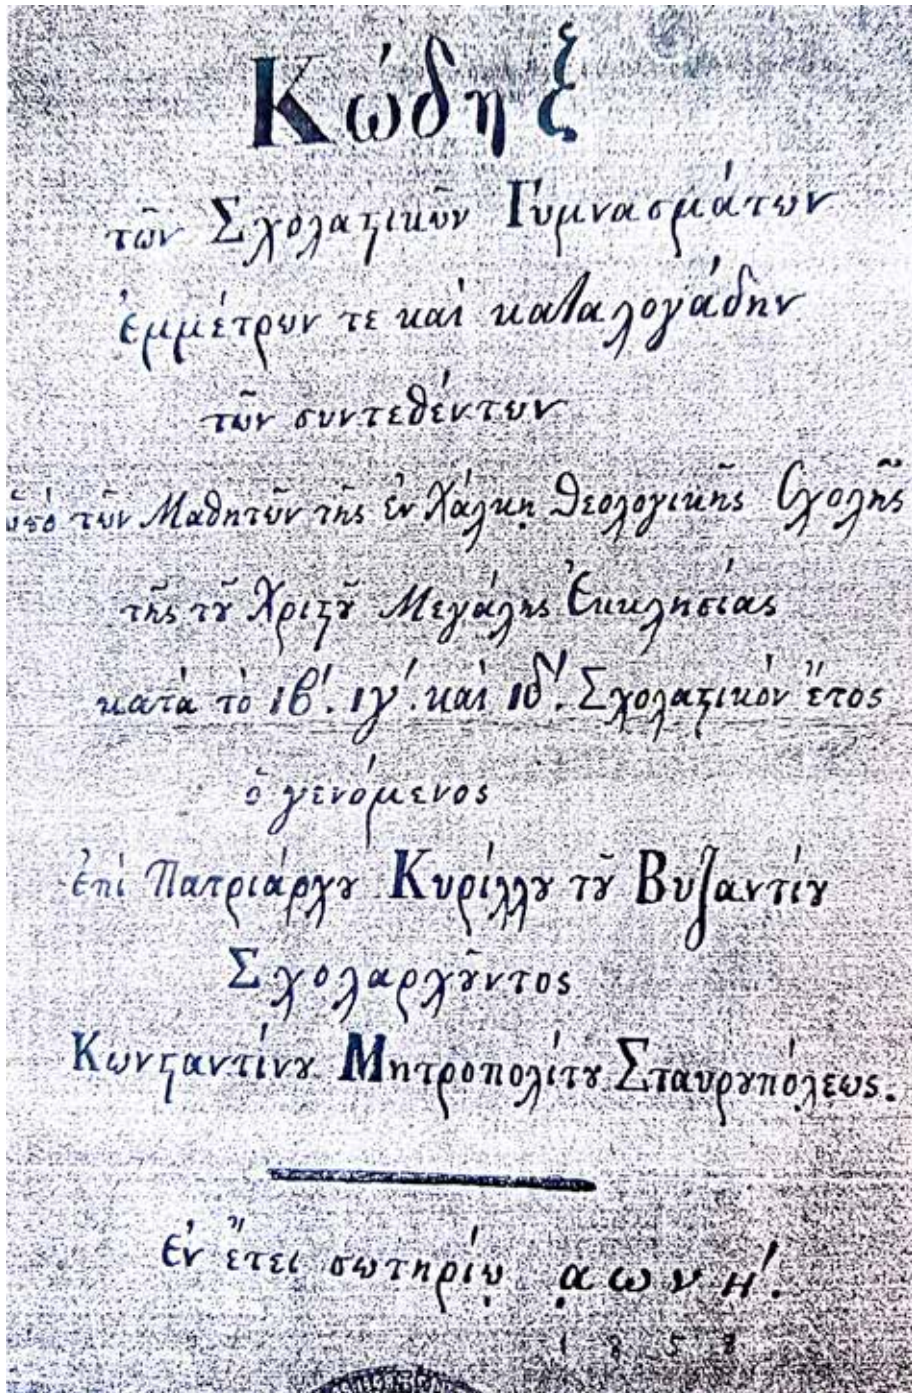 Κώδηξ
τῶν Σχολαϛικῶν Γυμνασμάτων
ἐμμέτρων τε καὶ καταλογάδην
τῶν συντεθέντων
ὑπὸ τῶν Μαθητῶν τῆς ἐν Χάλκῃ Θεολογικῆς Σχολῆς
τῆς τȣ͂ Χριϛȣ͂ Μεγάλης Ἐκκλησίας
κατὰ τὸ ιβ'. ιγ'. καὶ ιδ'. Σχολαϛικὸν ἔτος
ὁ γενόμενος
ἐπὶ Πατριάρχȣ Κυρίλλȣ τȣ͂ Βυζαντίȣ
Σχολαρχȣ͂ντος
Κωνϛαντίνȣ Μητροπολίτȣ Σταυρȣπόλεως.
ἐν ἔτει σωτηρίῳ ͵αωνη'.
1858